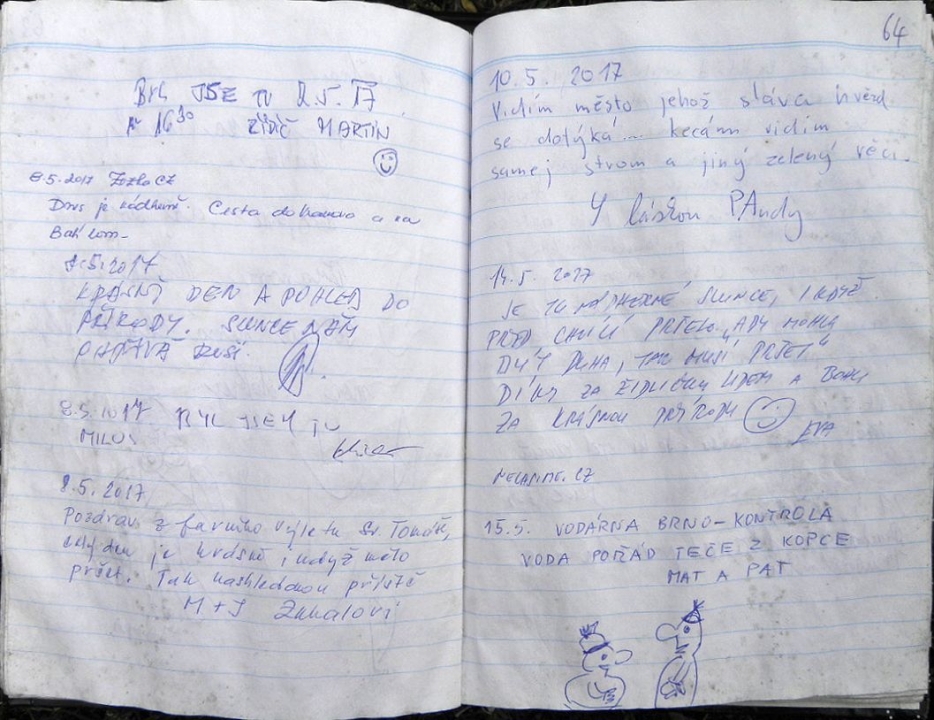 JSE TU 5. 17
MARTIN
5.2017
Dnes je nádherně. Cesta do a na
8.5.2017
KRÁSNÝ DEN A POHLED DO
PŘÍRODY. SLUNCE NÁM
DUŠI.
8.5.2017 BYL JSEM TU
MILOŠ
8.5.2017
Pozdrav z farního výletu Sv. Tomáš,
celý den je krásně, i když mělo
pršet. Tak nashledanou příště
M + J
64
10.5. 2017
Vidím město jehož sláva hvězd
se dotýká... kecám vidím
samej strom a jiný zelený věci.
S láskou PAndy
14.5. 2017
JE TU NÁDHERNÉ SLUNCE, I KDYŽ
PŘED CHVÍLÍ PRŠELO. „ABY MOHLA
BÝT DUHA, TAK MUSÍ PRŠET“
DÍKY ZA ŽIDLIČKU LIDEM A BOHU
ZA KRÁSNOU PŘÍRODU
EVA
15.5. VODÁRNA BRNO - KONTROLA
VODA POŘÁD TEČE Z KOPCE
MAT A PAT